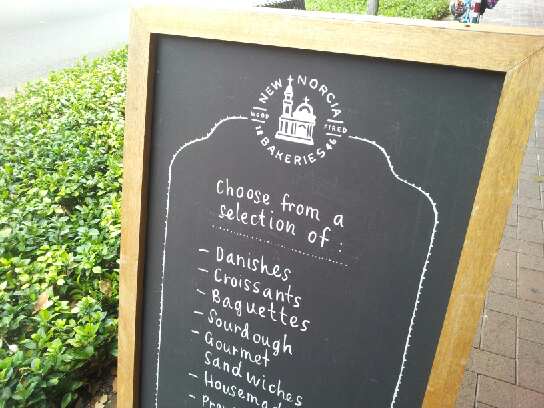 NEW NORCIA
WOOD FIRED
1846
BAKERIES
Choose from a
selection of :
- Danishes
- Croissants
- Baguettes
- Sourdough
- Gourmet
Sandwiches
- Housemad